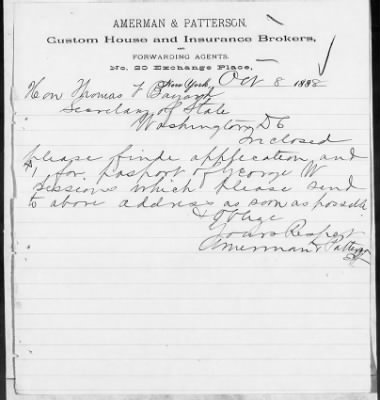 AMERMAN & PATTERSON,
Custom House and Insurance Brokers,
AND
FORWARDING AGENTS.
No. 20 Exchange Place,
New York, Oct 8 1888
Hon Thomas F Bayard
Secretary of State
Washington D C
Inclosed
please finde application and
$1 for pasport of George W
Sessions which please send
to above address as soon as possible
& Oblige
Yours Respect
Amerman & Patterson